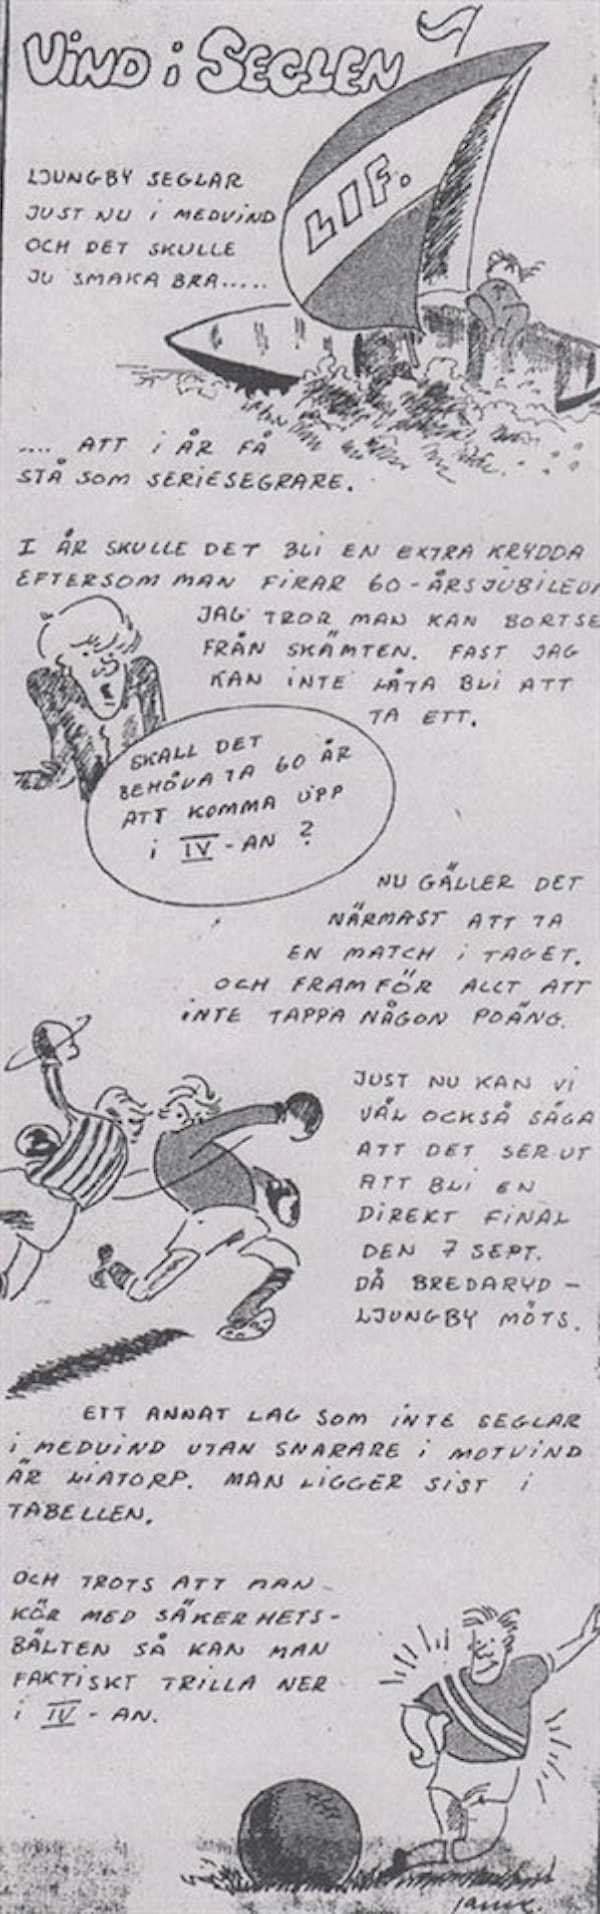 VIND I SEGLEN
LIF.
LJUNGBY SEGLAR
JUST NU I MEDVIND
OCH DET SKULLE
JU SMAKA BRA.....
.... ATT I ÅR FÅ
STÅ SOM SERIESEGRARE.
I ÅR SKULLE DET BLI EN EXTRA KRYDDA
EFTERSOM MAN FIRAR 60-ÅRSJUBILEU
JAG TROR MAN KAN BORTSE
FRÅN SKÄMTEN. FAST JAG
KAN INTE LÅTA BLI ATT
TA ETT.
SKALL DET
BEHÖVA TA 60 ÅR
ATT KOMMA UPP
I IV-AN ?
NU GÄLLER DET
NÄRMAST ATT TA
EN MATCH I TAGET.
OCH FRAMFÖR ALLT ATT
INTE TAPPA NÅGON POÄNG.
JUST NU KAN VI
VÄL OCKSÅ SÄGA
ATT DET SER UT
ATT BLI EN
DIREKT FINAL
DEN 7 SEPT.
DÅ BREDARYD-
LJUNGBY MÖTS.
ETT ANNAT LAG SOM INTE SEGLAR
I MEDVIND UTAN SNARARE I MOTVIND
ÄR LIATORP. MAN LIGGER SIST I
TABELLEN.
OCH TROTS ATT MAN
KÖR MED SÄKERHETS-
BÄLTEN SÅ KAN MAN
FAKTISKT TRILLA NER
I IV-AN.